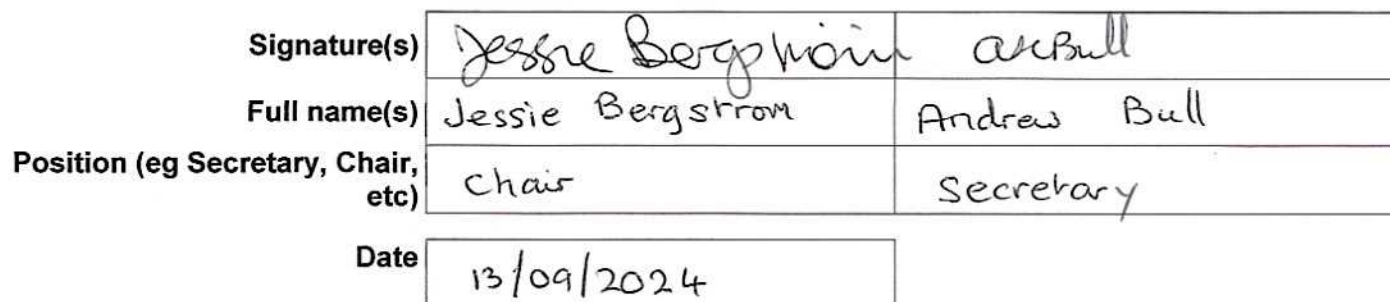 Signature(s) Jessie Bergstrom AKBull
Full name(s) Jessie Bergstrom Andrew Bull
Position (eg Secretary, Chair, Chair Secretary
etc)
Date 13/09/2024